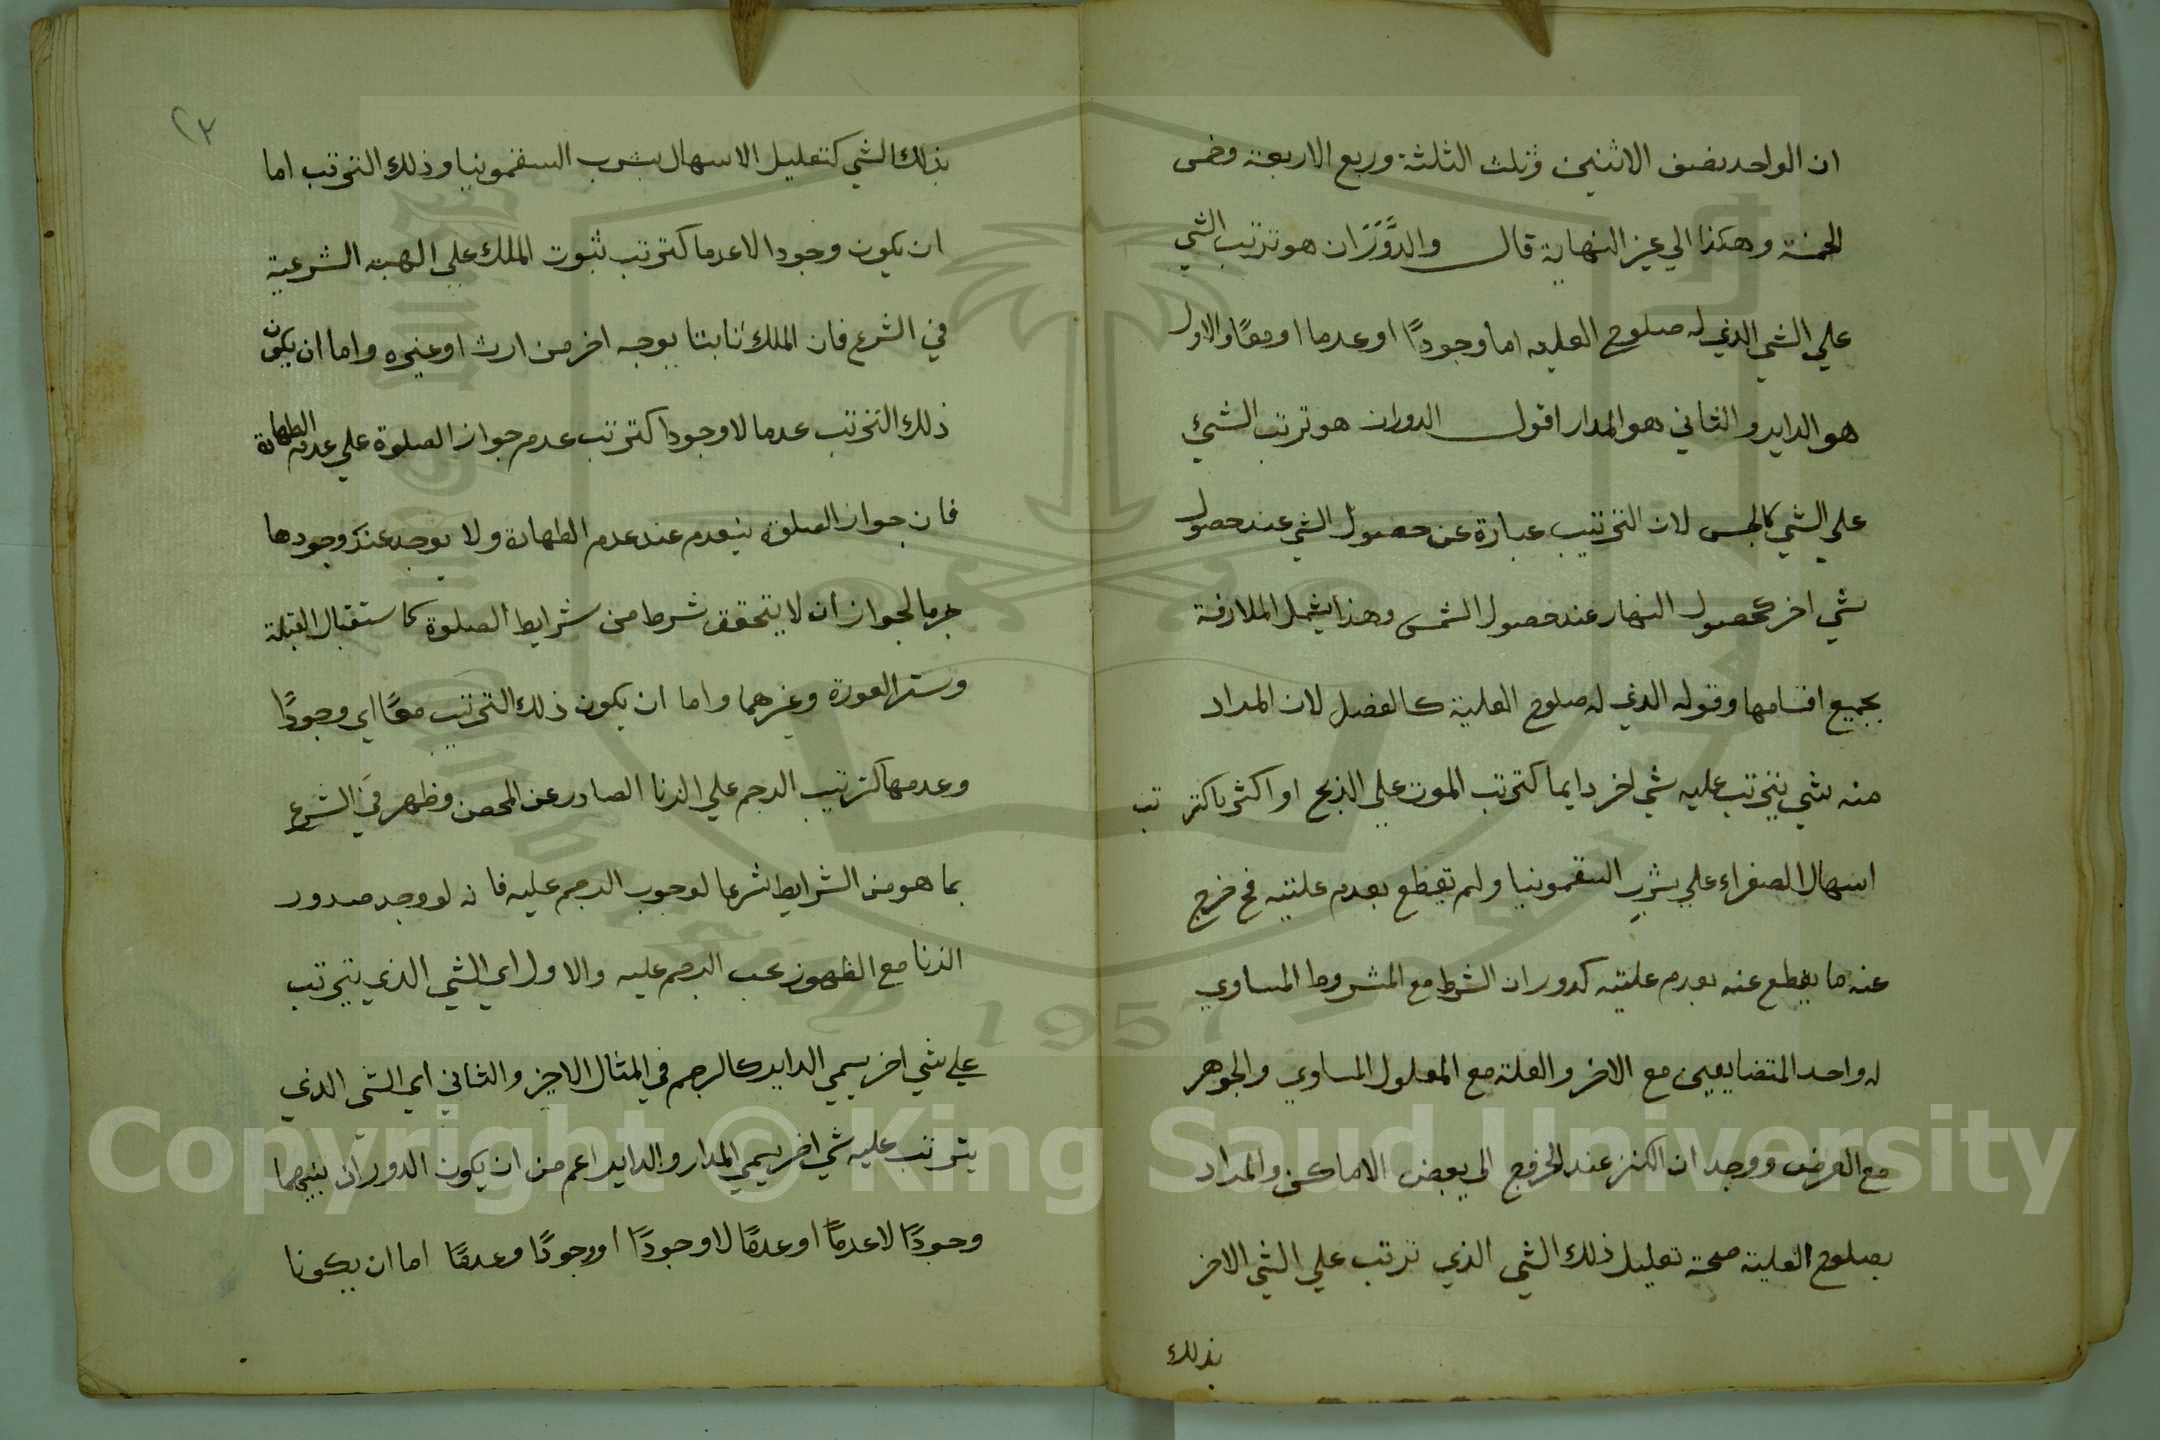 ان الواحد نصف الاثنين وثلث الثلثة وربع الاربعة وخمس
الخمسة وهكذا الي غير النهاية قال والدَّوَرَان هو ترتب الشي
علي الشي الذي له صلوح العليه اما وجودًا او عدما او معًا والاول
هو الداير والثاني هو المدار اقول الدوران هو ترتب الشيء
علي الشي كالجس لان الترتيب عبارة عن حصول الشي عند حصول
شي اخر كحصول النهار عند حصول الشمس وهذا يشمل الملازمة
بجميع اقسامها وقوله الذي له صلوح العلية كالفصل لان المراد
منه شي يترتب عليه شي اخر دايما كترتب الموت علي الذبح او اكثريا كترتب
اسهال الصفراء علي شرب السقمونيا ولم يقطع بعدم عليته فح خرج
عنه ما يقطع عنه بعدم عليته كدوران الشرط مع المشروط المساوي
له واحد المتضايفين مع الاخر والعلة مع المعلول المساوي والجوهر
مع العرض ووجدان الكنز عند الخرفج الي بعض الاماكن والمراد
بصلوح العلية صحة تعليل ذلك الشي الذي ترتب علي الشي الاخر
بذلك
٢٣
بذلك الشي كتعليل الاسهال بشرب السقمونيا وذلك الترتب اما
ان يكون وجودا لا عدما كترتب ثبوت الملك علي الهبه الشرعية
في الشرع فان الملك ثابتا بوجه اخر من ارث او غيره واما ان يكون
ذلك الترتب عدما لا وجودا كترتب عدم جواز الصلوة علي عدم الطهارة
فان جواز الصلوة ينعدم عند عدم الطهارة ولا يوجد عند وجودها
جرما لجواز ان لا يتحقق شرط من شرايط الصلوة كاستقبال القبلة
وستر العورة وغيرهما واما ان يكون ذلك الترتيب معًا اي وجودًا
وعدمها كترتيب الرجم علي الزنا الصادر عن المحصن وظهر في الشرع
بما هو من الشرايط شرعا لوجوب الرجم عليه فانه لو وجد صدور
الزنا مع الظهور يجب الرجم عليه والاول اي الشي الذي يترتب
علي شي اخر يسمي الداير كالرجم في المثال الاخير والثاني اي الشي الذي
يترتب عليه شي اخر يسمي المدار والداير اعم من ان يكون الدوران بينهما
وجودًا لا عدمًا او عدمًا لا وجودًا او وجودًا وعدمًا اما ان يكونا
Copyright © King Saud University
1957